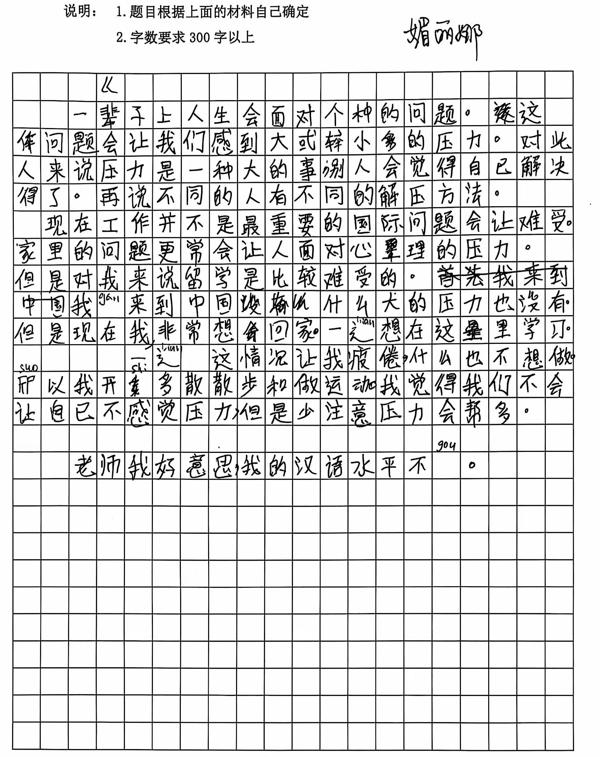 说明： 1.题目根据上面的材料自己确定
2.字数要求 300 字以上
媚丽娜
《
一辈子上人生会面对个种的问题。 这
问题会让我们感到大或较小多的压力。对此
人来说压力是一种大的事，别人会觉得自己解决
得了。再说不同的人有不同的解压方法。
现在工作并不是最重要的国际问题会让难受。
家里的问题更常会让人面对心理的压力。
但是对我来说留学是比较难受的。首先我来到
中国我gan来到中国没有什么大的压力也没有。
但是现在我非常想回家。一zhi想在这里学习。
一zhi这情况让我疲倦，什么也不想做。
suo
所以我开shi多散散步和做运动我觉得我们不会
让自己不感觉压力，但是少注意压力会帮多。
老师我好意思，我的汉语水平不gou。